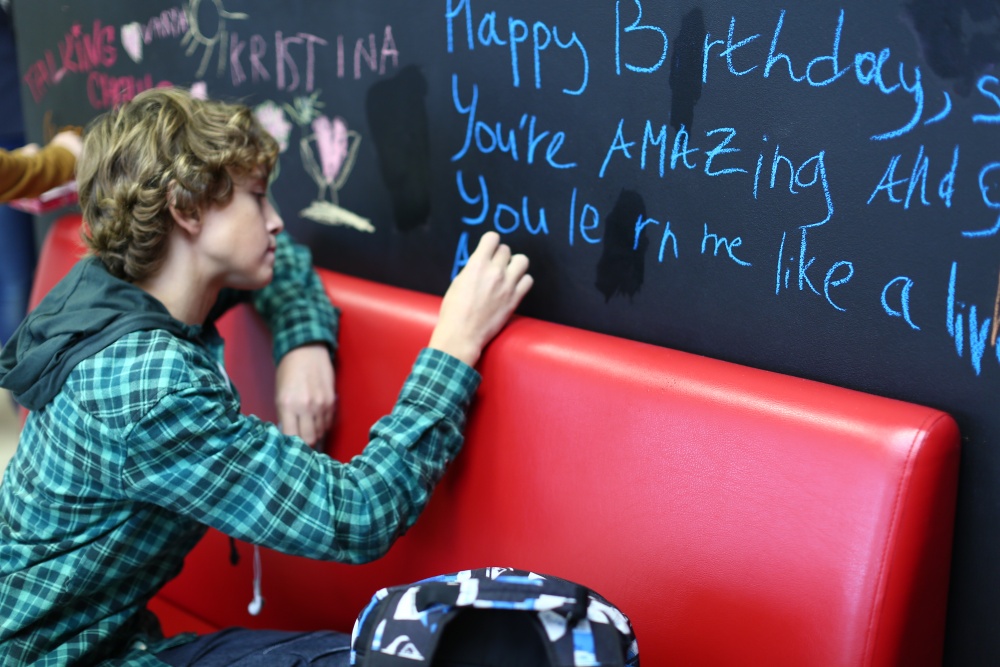 TALKING
VARYA
KRISTINA
Happy Birthday, s
You're AMAZing And
you le rn me like a liv
A